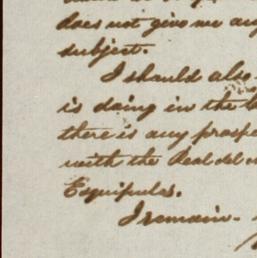 does not give me any
subject.
I should also
is doing in the
there is any prospe
with the Real del
Esquipulas.
I remain